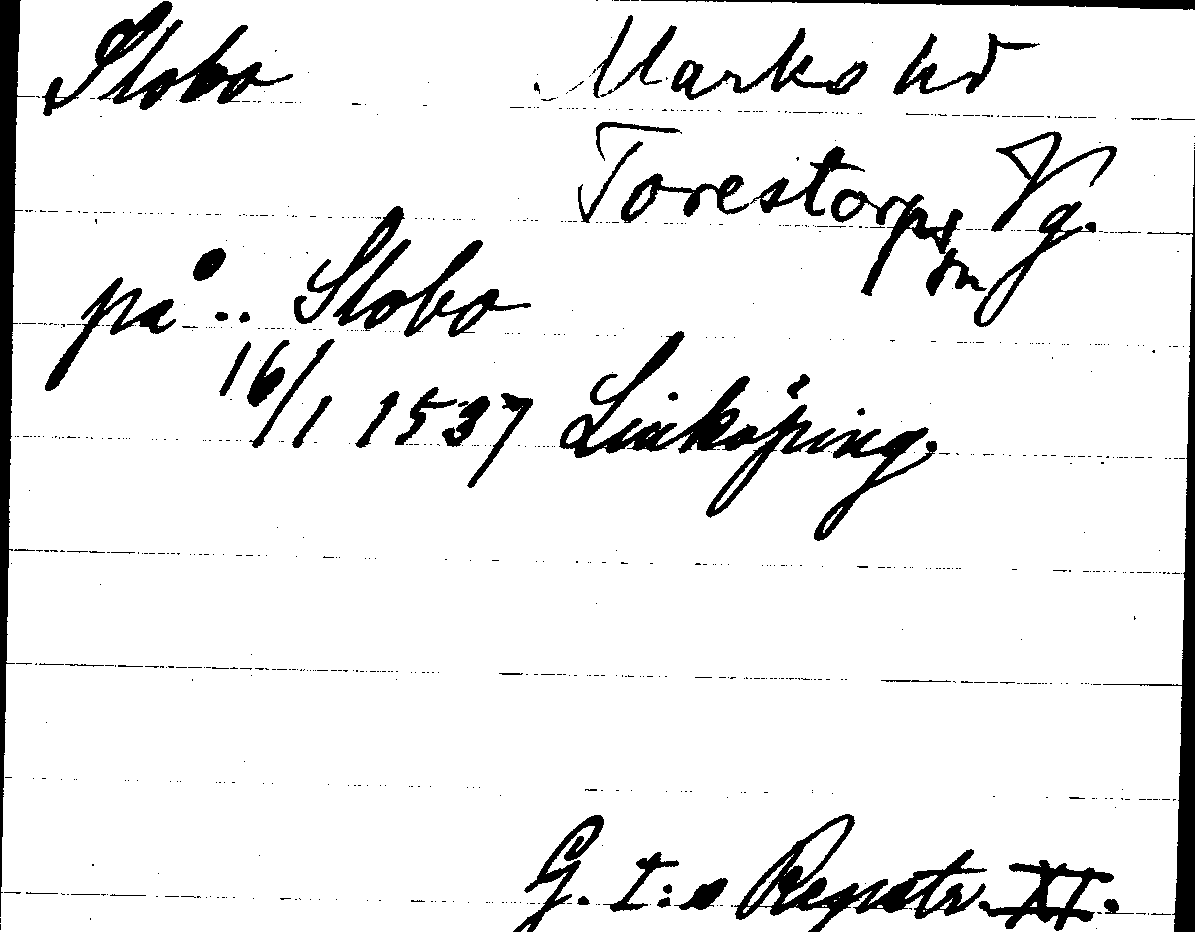 Slobo Marks hd
Torestorps Vg.
sn
på .. Slobo
16/1 1537 Linköping.
G. I:s Registr. XI.